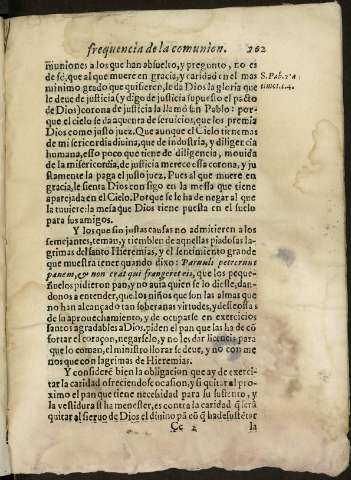 frequencia de la comunion. 202
muniones a los que han absuelto, y pregunto, no es
de fé, que al que muere en gracia, y caridad en el mas
minimo grado que quisieren, le da Dios la gloria que
le deue de justicia (y digo de justicia supuesto el pacto
de Dios) corona de justicia la llamó san Pablo: por-
que el cielo se da a quenta de seruicios, que los premia
Dios como justo juez. Que aunque el Cielo tiene mas
de misericordia diuina, que de industria, y diligencia
humana, esso poco que tiene de diligencia, mouida
de la misericordia, de justicia merece essa corona, y ju
stamente la paga el justo juez. Pues al que muere en
gracia, le sienta Dios consigo en la messa que tiene
aparejada en el Cielo. Porque se le ha de negar al que
la tuuiere: la mesa que Dios tiene puesta en el suelo
para sus amigos.
S. Pab. 2. a
timot. c. 4.
Y los que sin justas causas no admitieren a los
semejantes, teman, y tiemblen de aquellas piadosas la-
grimas del santo Hieremias, y el sentimiento grande
que muestra tener quando dixo: Paruuli petierunt
panem, & non erat qui frangeret eis, que los peque-
ñuelos pidieron pan, y no auia quien se lo diesse, dan-
donos a entender, que los niños que son las almas que
no han alcançado tan soberanas virtudes, y desseosas
de su aprouechamiento, y de ocuparse en exercicios
santos agradables a Dios, piden el pan que las ha de cõ
fortar el coraçon, negarselo, y no les dar licencia para
que lo coman, el ministro llorar se deue, y no con me
nos que con lagrimas de Hieremias.
Y consideré bien la obligacion que ay de exerci-
tar la caridad ofreciendose ocasion, y si quitar al pro-
ximo el pan que tiene necessidad para su sustento, y
la vestidura si ha menester, es contra la caridad q̃ será
quitar al sieruo de Dios el diuino pã cõ q̃ ha de sustẽtar
Cc 2 la